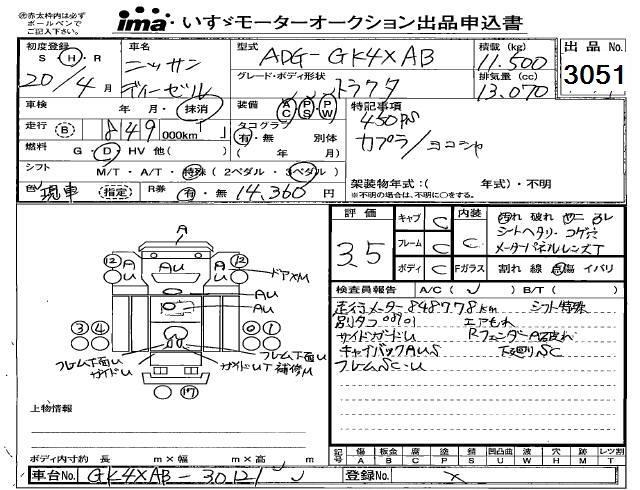 ㊟赤太枠内は必ず
ボールペンで
ご記入下さい。
ima いすゞモーターオークション出品申込書
初度登録 S・H・R 20/4月
車名 ニッサン ディーゼル
型式 ADG-GK4XAB
グレード・ボディ形状 トラクタ
積載(kg) 11,500
排気量(cc) 13,070
出品No. 3051
車検 年・月・抹消
装備 AC PS PW
特記事項
450PS
カプラ/ヨコシャ
走行(B) 849 000km
タコグラフ 有・無 別体
(年/月)
燃料 G・D・HV 他( )
シフト M/T・A/T・特殊(2ペダル・3ペダル)
架装物年式:( 年式)・不明
※不明の場合は、不明に○をする。
現車 (指定)
R券 有・無 14,360円
評価 3.5
キャブ C
フレーム C
ボディ C
内装 C
汚れ 破れ
シートヘタリ・コゲ穴
メーターパネルレンズT
Fガラス 割れ 線 点傷 イバリ
検査員報告 A/C( ✓ ) B/T( )
走行メーター848778km シフト特殊
エアもれ
サイドガードU
キャイバックAUS 下廻りSC
フレムSC・U
A
12 12
A U A U
AU
ドアXU
AU
AU
3 4 0 1
フレム下面U
ガイドU
フレム下面U
ガイドUT補修U
上物情報
ボディ内寸約 長 m×幅 m×高 m
記号 傷A 板金B 腐C 塗P 錆S 凹凸曲U 波W 穴H 跡M 飛石F レンズ割T
車台No. GK4XAB-30121
登録No. ×